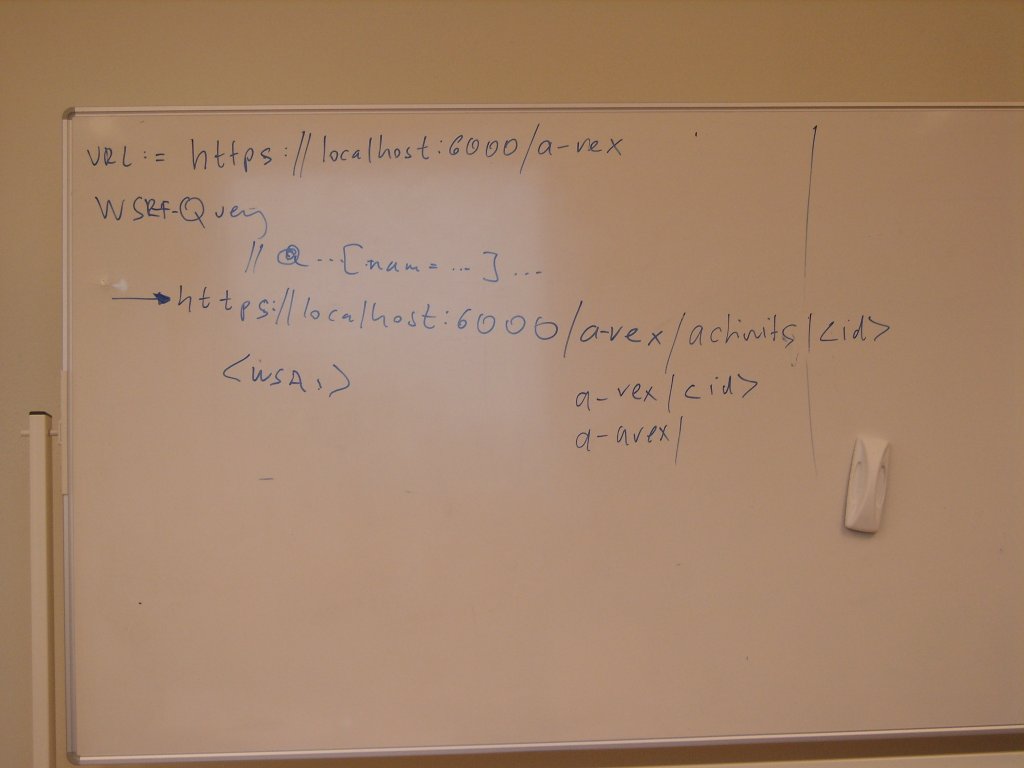 URL := https://localhost:6000/a-rex
WSRF-Query
// @ ...[nam= ...] ...
https://localhost:6000/a-rex/activity/<id>
<WSA:>
a-rex/<id>
a-arex/